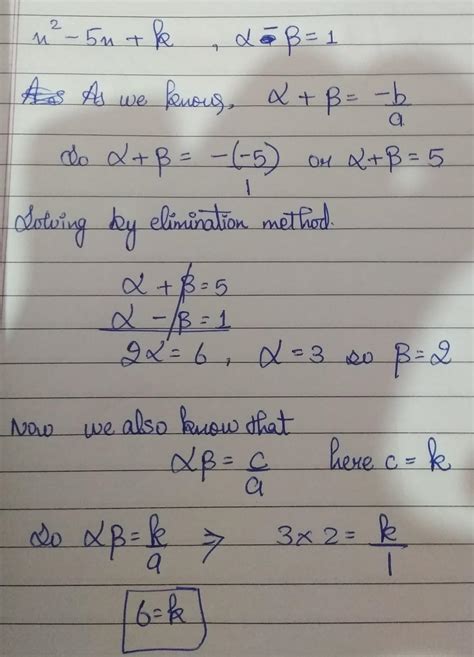 x² - 5x + k , α - β = 1
As we know, α + β = -b/a
So α + β = -(-5)/1 or α + β = 5
Solving by elimination method.
α + β = 5
α - β = 1
2α = 6 , α = 3 so β = 2
Now we also know that
αβ = c/a here c = k
So αβ = k/a ⇒ 3 × 2 = k/1
6 = k